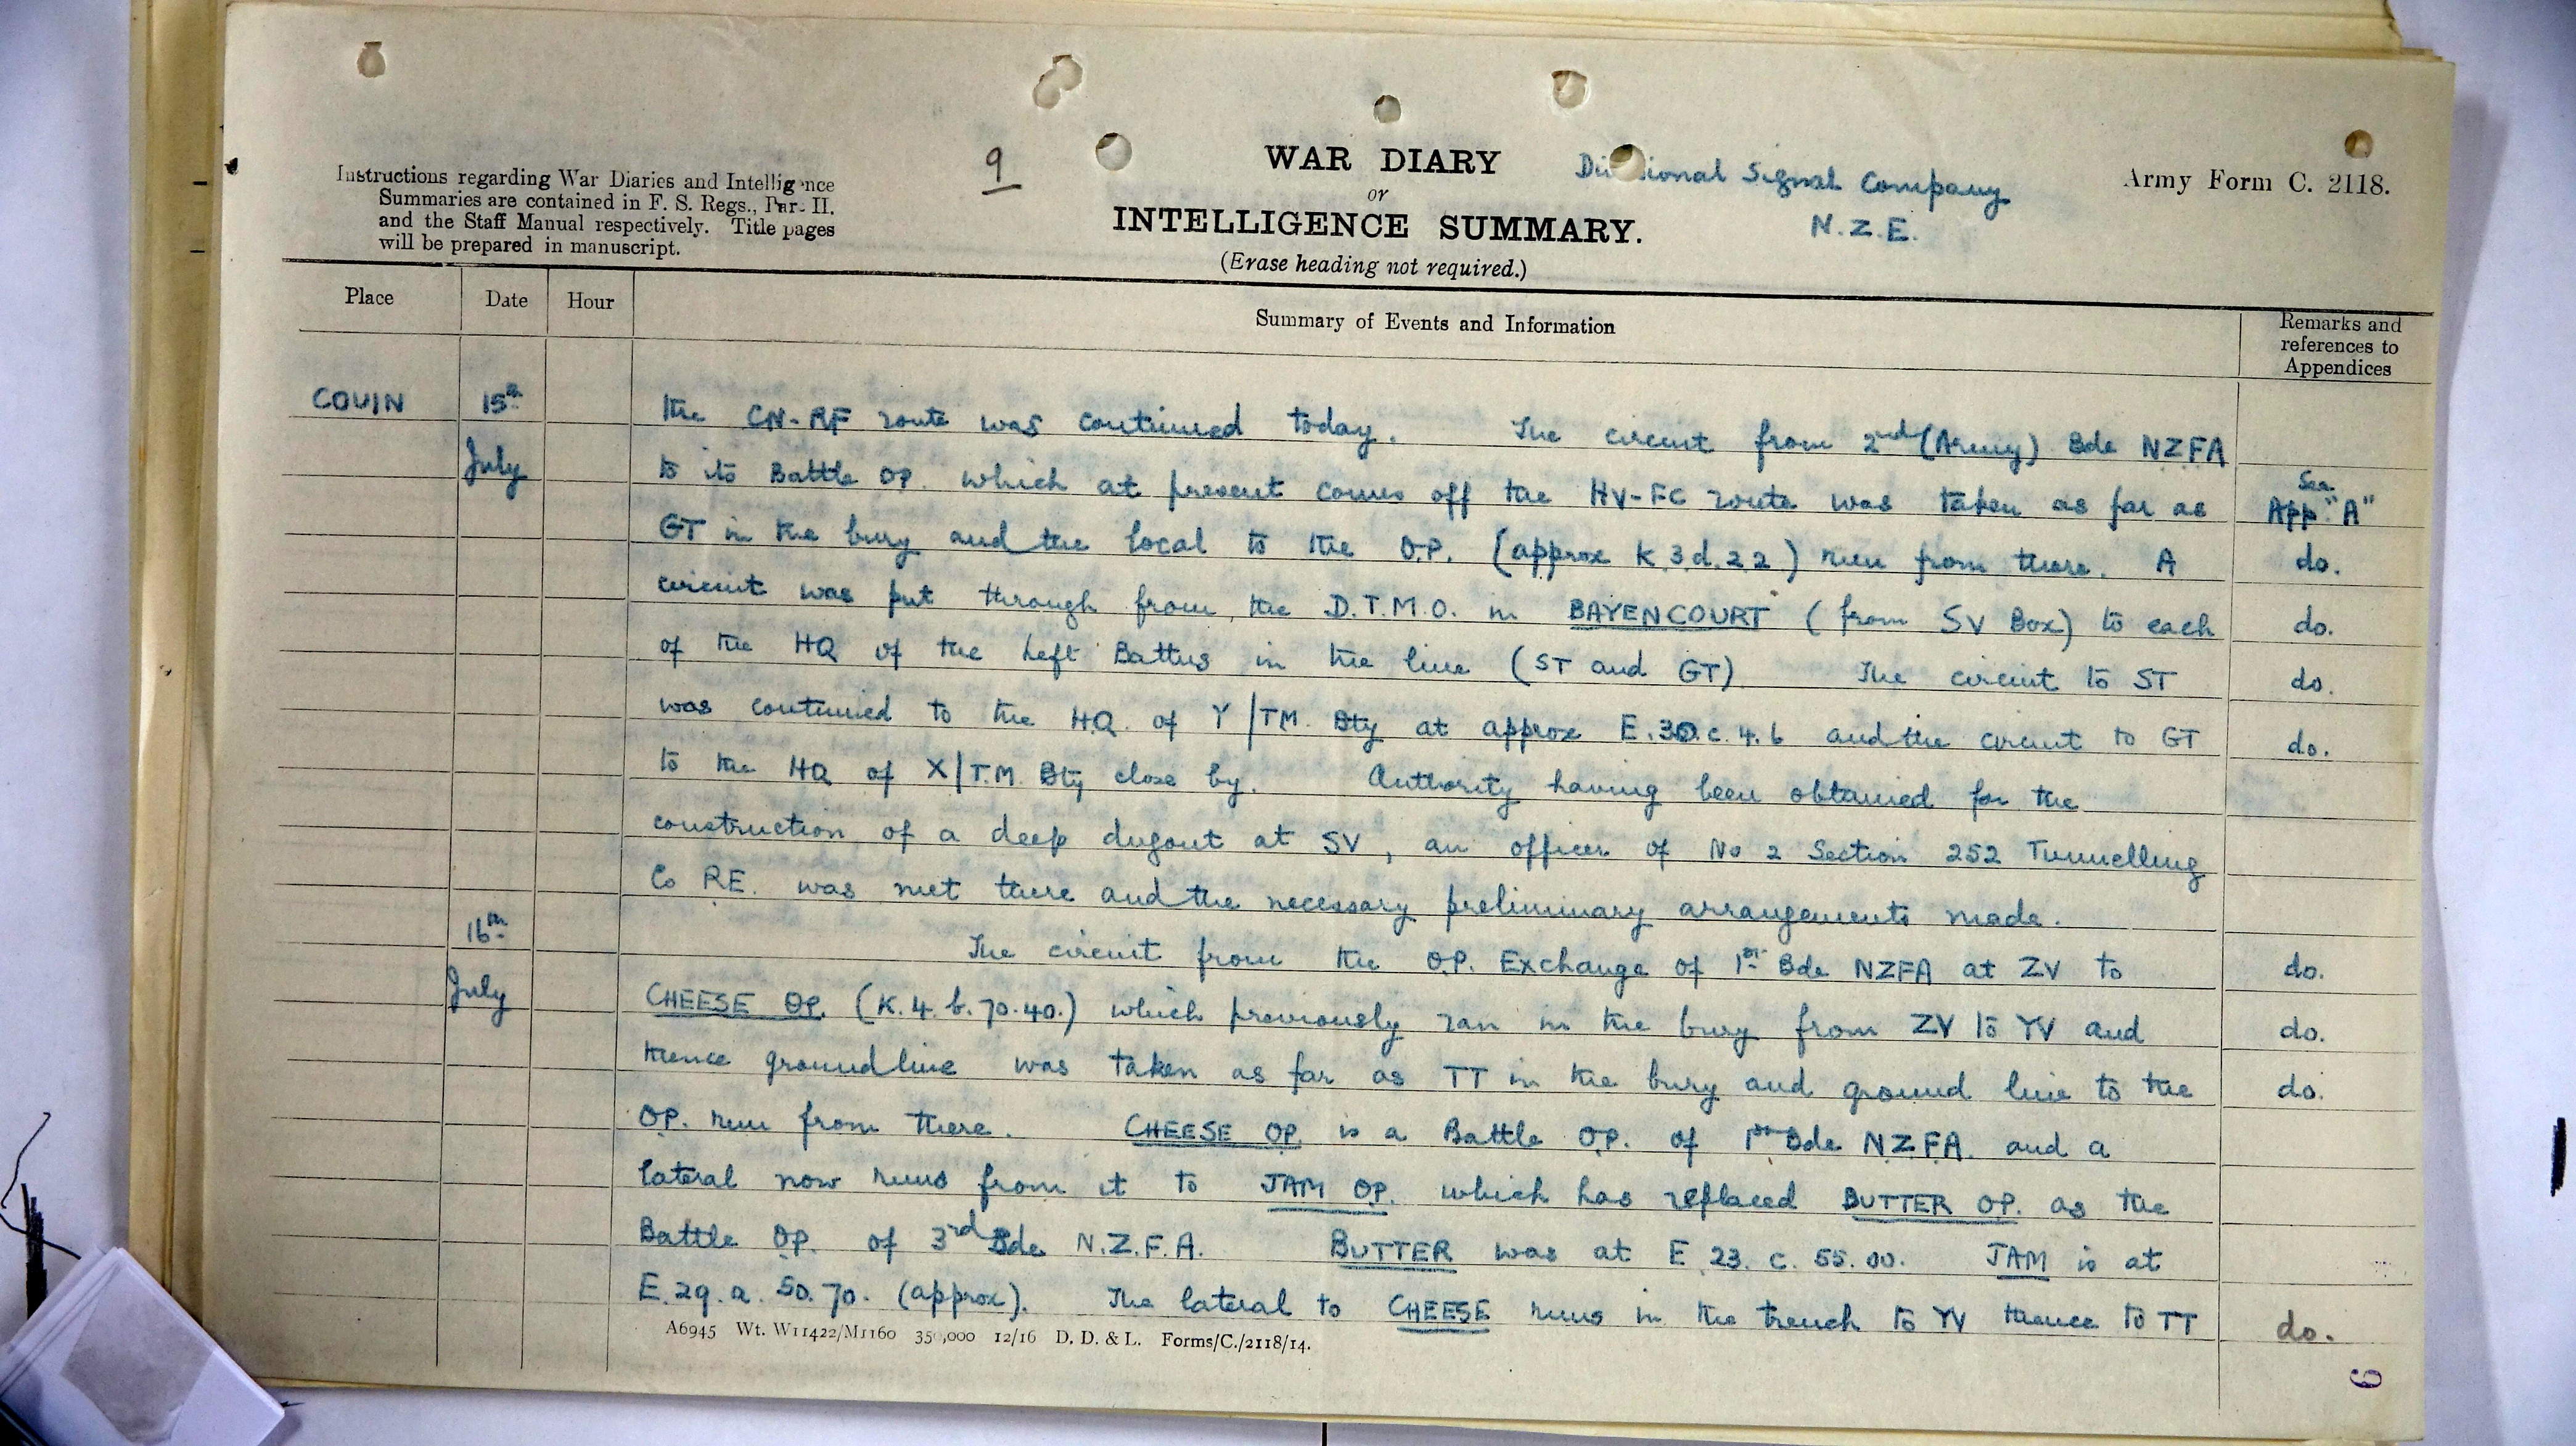 Instructions regarding War Diaries and Intelligence
Summaries are contained in F. S. Regs., Par. II.
and the Staff Manual respectively. Title pages
will be prepared in manuscript.
9
WAR DIARY
or
INTELLIGENCE SUMMARY.
(Erase heading not required.)
Divisional Signal Company
N.Z.E.
Army Form C. 2118.
Place Date Hour Summary of Events and Information Remarks and references to Appendices
COUIN 15th the CN-RF route was continued today. The circuit from 2nd (Army) Bde NZFA
July to its Battle OP. which at present comes off the HV-FC route was taken as far as See App "A"
GT in the bury and the local to the O.P. (approx K.3.d.2.2) run from there. A do.
circuit was put through from the D.T.M.O. in BAYENCOURT (from SV Box) to each do.
of the HQ of the Left Battns in the line (ST and GT) The circuit to ST do.
was continued to the HQ. of Y/TM. Bty at approx E.30.c.4.6 and the circuit to GT do.
to the HQ of X/T.M. Bty close by. Authority having been obtained for the
construction of a deep dugout at SV, an officer of No 2 Section 252 Tunnelling
Co R.E. was met there and the necessary preliminary arrangements made.
16th The circuit from the O.P. Exchange of 1st Bde NZFA at ZV to do.
July CHEESE OP. (K.4.b.70.40.) which previously ran in the bury from ZV to YV and do.
thence groundline was taken as far as TT in the bury and ground line to the do.
O.P. run from there. CHEESE OP. is a Battle O.P. of 1st Bde N.Z.F.A. and a
lateral now runs from it to JAM OP. which has replaced BUTTER OP. as the
Battle O.P. of 3rd Bde N.Z.F.A. BUTTER was at E.23.c.55.00. JAM is at
E.29.a.50.70. (approx). The lateral to CHEESE runs in the trench to YV thence to TT do.
A6945 Wt. W11422/M1160 350,000 12/16 D. D. & L. Forms/C./2118/14.
6